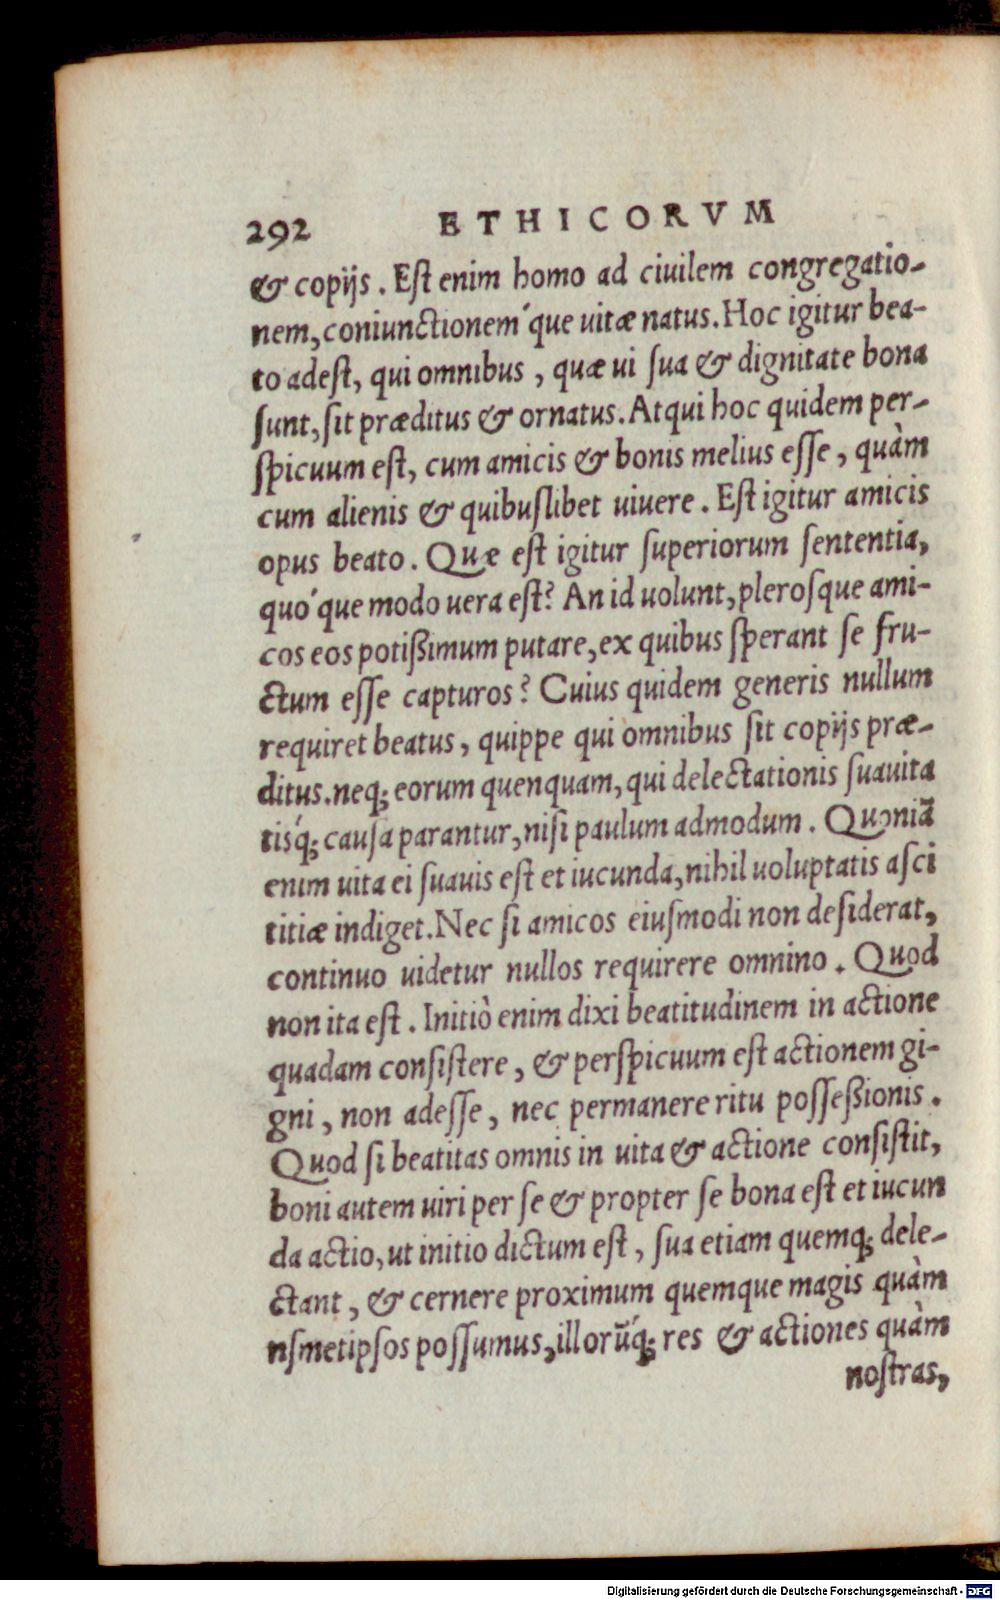 292 ETHICORVM
& copijs. Est enim homo ad ciuilem congregatio-
nem, coniunctionem´que uitæ natus. Hoc igitur bea-
to adest, qui omnibus, quæ ui sua & dignitate bona
sunt, sit præditus & ornatus. Atqui hoc quidem per-
spicuum est, cum amicis & bonis melius esse, quàm
cum alienis & quibuslibet uiuere. Est igitur amicis
opus beato. Quæ est igitur superiorum sententia,
quo´que modo uera est? An id uolunt, plerosque ami-
cos eos potißimum putare, ex quibus sperant se fru-
ctum esse capturos? Cuius quidem generis nullum
requiret beatus, quippe qui omnibus sit copijs præ-
ditus. neq; eorum quenquam, qui delectationis suauita
tis´q; causa parantur, nisi paulum admodum. Quoniã
enim uita ei suauis est et iucunda, nihil uoluptatis asci
titiæ indiget. Nec si amicos eiusmodi non desiderat,
continuo uidetur nullos requirere omnino. Quod
non ita est. Initiò enim dixi beatitudinem in actione
quadam consistere, & perspicuum est actionem gi-
gni, non adesse, nec permanere ritu possessionis.
Quod si beatitas omnis in uita & actione consistit,
boni autem uiri per se & propter se bona est et iucun
da actio, ut initio dictum est, sua etiam quemq; dele-
ctant, & cernere proximum quemque magis quàm
nsmetipsos possumus, illorũ´q; res & actiones quàm
nostras,
Digitalisierung gefördert durch die Deutsche Forschungsgemeinschaft - DFG